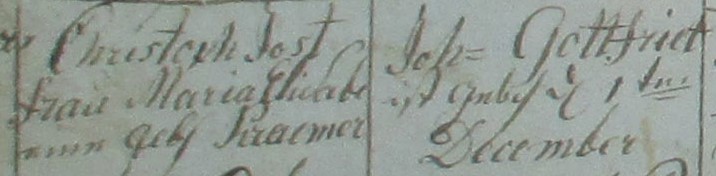 Christoph Jost
frau Maria Elisabe
geb Kraemer
Joh= Gottfriet
ist geb d 1 ten
December